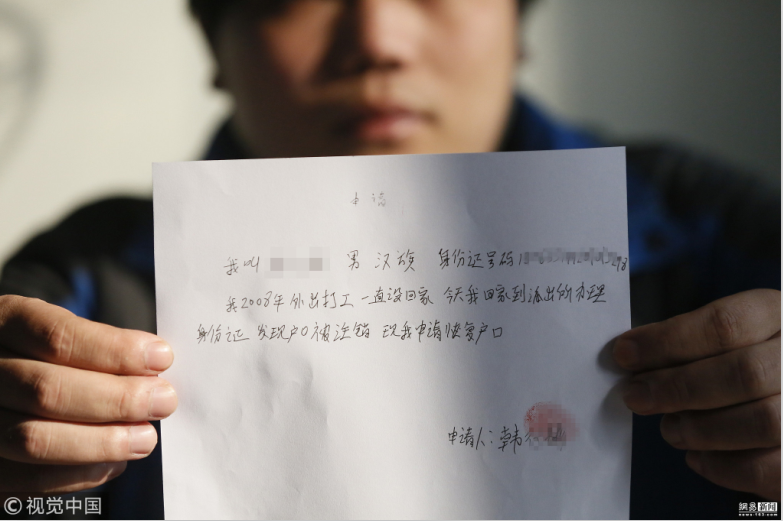 申请
我叫 男 汉族 身份证号码
我2008年外出打工 一直没回家 今天我回家到派出所办理
身份证 发现户口被注销 现我申请恢复户口
申请人：韩
© 视觉中国
网易 新闻
news.163.com